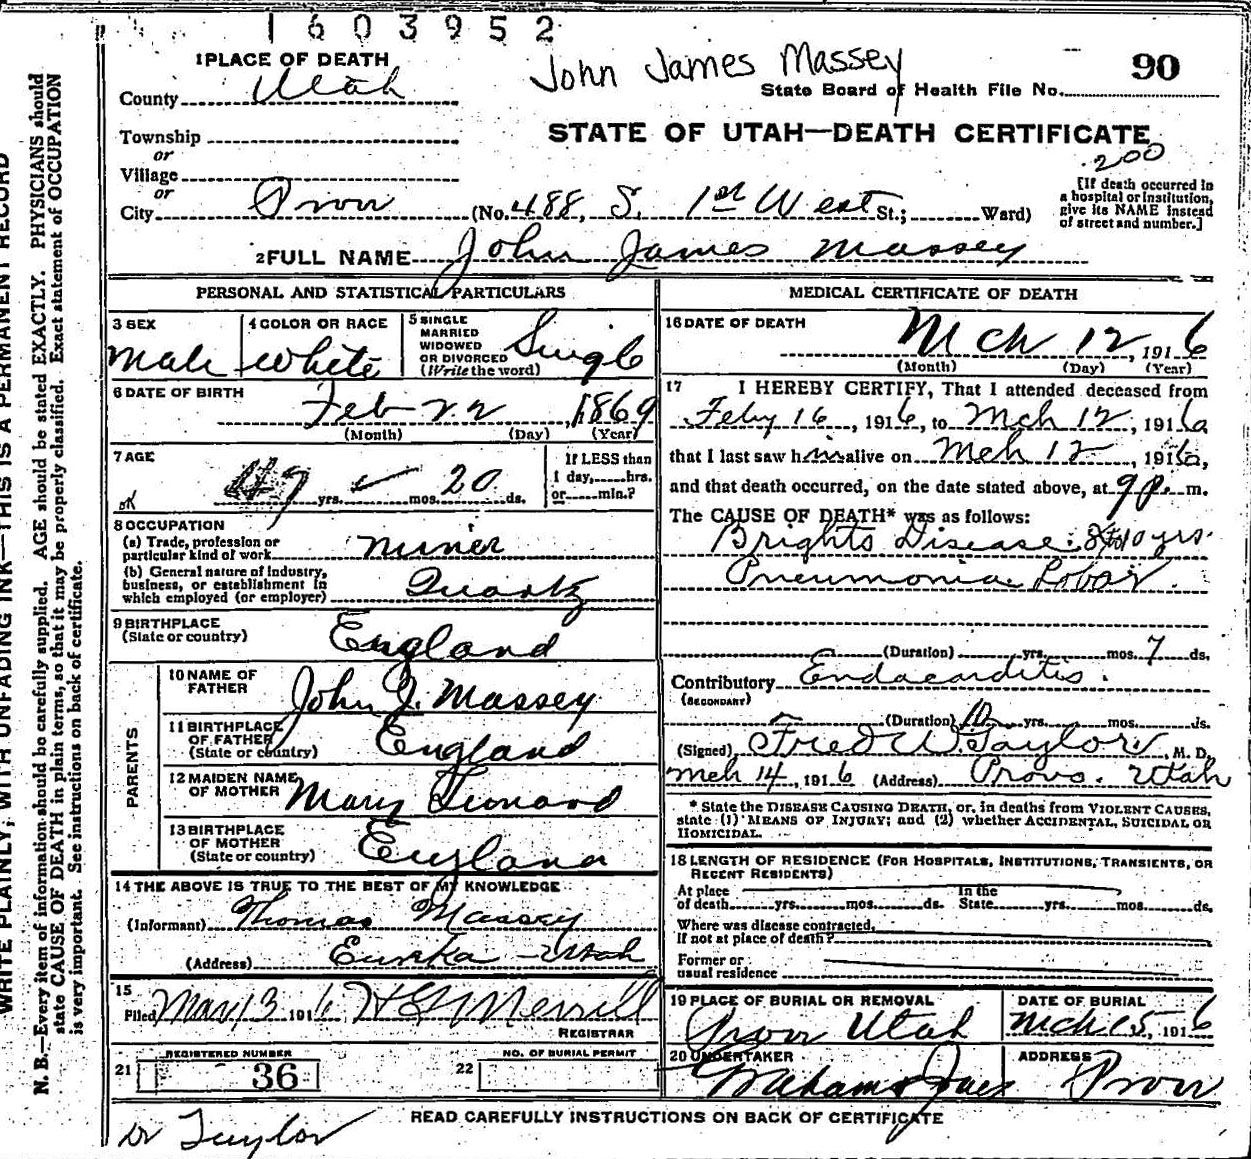 1603952
John James Massey
90
State Board of Health File No.
STATE OF UTAH—DEATH CERTIFICATE
200
1 PLACE OF DEATH
County Utah
Township
or
Village
or
City Provo (No. 488, S. 1st West St.; Ward)
[If death occurred in
a hospital or institution,
give its NAME instead
of street and number.]
2 FULL NAME John James Massey
PERSONAL AND STATISTICAL PARTICULARS
3 SEX
Male
4 COLOR OR RACE
White
5 SINGLE
MARRIED
WIDOWED
OR DIVORCED
(Write the word)
Single
6 DATE OF BIRTH
Feb 22, 1869
(Month) (Day) (Year)
7 AGE
ok 47 yrs. mos. 20 ds.
If LESS than
1 day, hrs.
or min.?
8 OCCUPATION
(a) Trade, profession or
particular kind of work Miner
(b) General nature of industry,
business, or establishment in
which employed (or employer) Quartz
9 BIRTHPLACE
(State or country) England
PARENTS
10 NAME OF
FATHER John J. Massey
11 BIRTHPLACE
OF FATHER
(State or country) England
12 MAIDEN NAME
OF MOTHER Mary Leonard
13 BIRTHPLACE
OF MOTHER
(State or country) England
14 THE ABOVE IS TRUE TO THE BEST OF MY KNOWLEDGE
(Informant) Thomas Massey
(Address) Eureka - Utah
15
Filed Mar 13 1916 H G Merrill
REGISTRAR
21 REGISTERED NUMBER
36
22 NO. OF BURIAL PERMIT
MEDICAL CERTIFICATE OF DEATH
16 DATE OF DEATH
Mch 12, 1916
(Month) (Day) (Year)
17 I HEREBY CERTIFY, That I attended deceased from
Feby 16, 1916, to Mch 12, 1916
that I last saw him alive on Mch 12, 1916,
and that death occurred, on the date stated above, at 9 p. m.
The CAUSE OF DEATH* was as follows:
Brights Disease: 10 yrs.
Pneumonia Lobar.
(Duration) yrs. mos. 7 ds.
Contributory Endocarditis.
(SECONDARY)
(Duration) 10 yrs. mos. ds.
(Signed) Fred W. Taylor, M. D.
Mch 14, 1916 (Address) Provo. Utah
* State the DISEASE CAUSING DEATH, or, in deaths from VIOLENT CAUSES,
state (1) MEANS OF INJURY; and (2) whether ACCIDENTAL, SUICIDAL OR
HOMICIDAL.
18 LENGTH OF RESIDENCE (FOR HOSPITALS, INSTITUTIONS, TRANSIENTS, OR
RECENT RESIDENTS)
At place In the
of death yrs. mos. ds. State yrs. mos. ds.
Where was disease contracted,
If not at place of death?
Former or
usual residence
19 PLACE OF BURIAL OR REMOVAL
Provo Utah
DATE OF BURIAL
Mch 15, 1916
20 UNDERTAKER
ADDRESS
Provo
READ CAREFULLY INSTRUCTIONS ON BACK OF CERTIFICATE
Dr Taylor
WRITE PLAINLY, WITH UNFADING INK—THIS IS A PERMANENT RECORD
N. B.—Every item of information should be carefully supplied. AGE should be stated EXACTLY. PHYSICIANS should
state CAUSE OF DEATH in plain terms, so that it may be properly classified. Exact statement of OCCUPATION
is very important. See instructions on back of certificate.